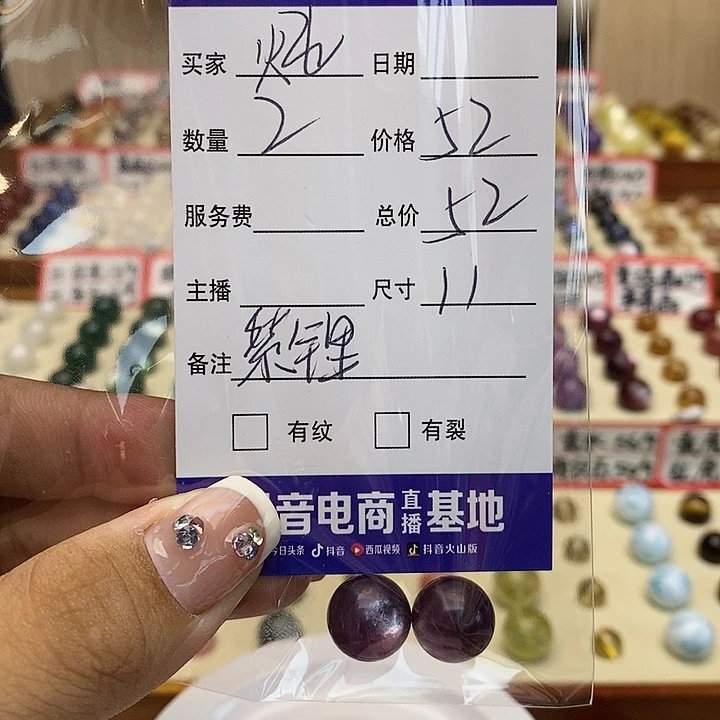 买家 日期
数量 2 价格 52
服务费 总价 52
主播 尺寸 11
备注 紫锂
有纹 有裂
音电商直播基地
今日头条 抖音 西瓜视频 抖音火山版